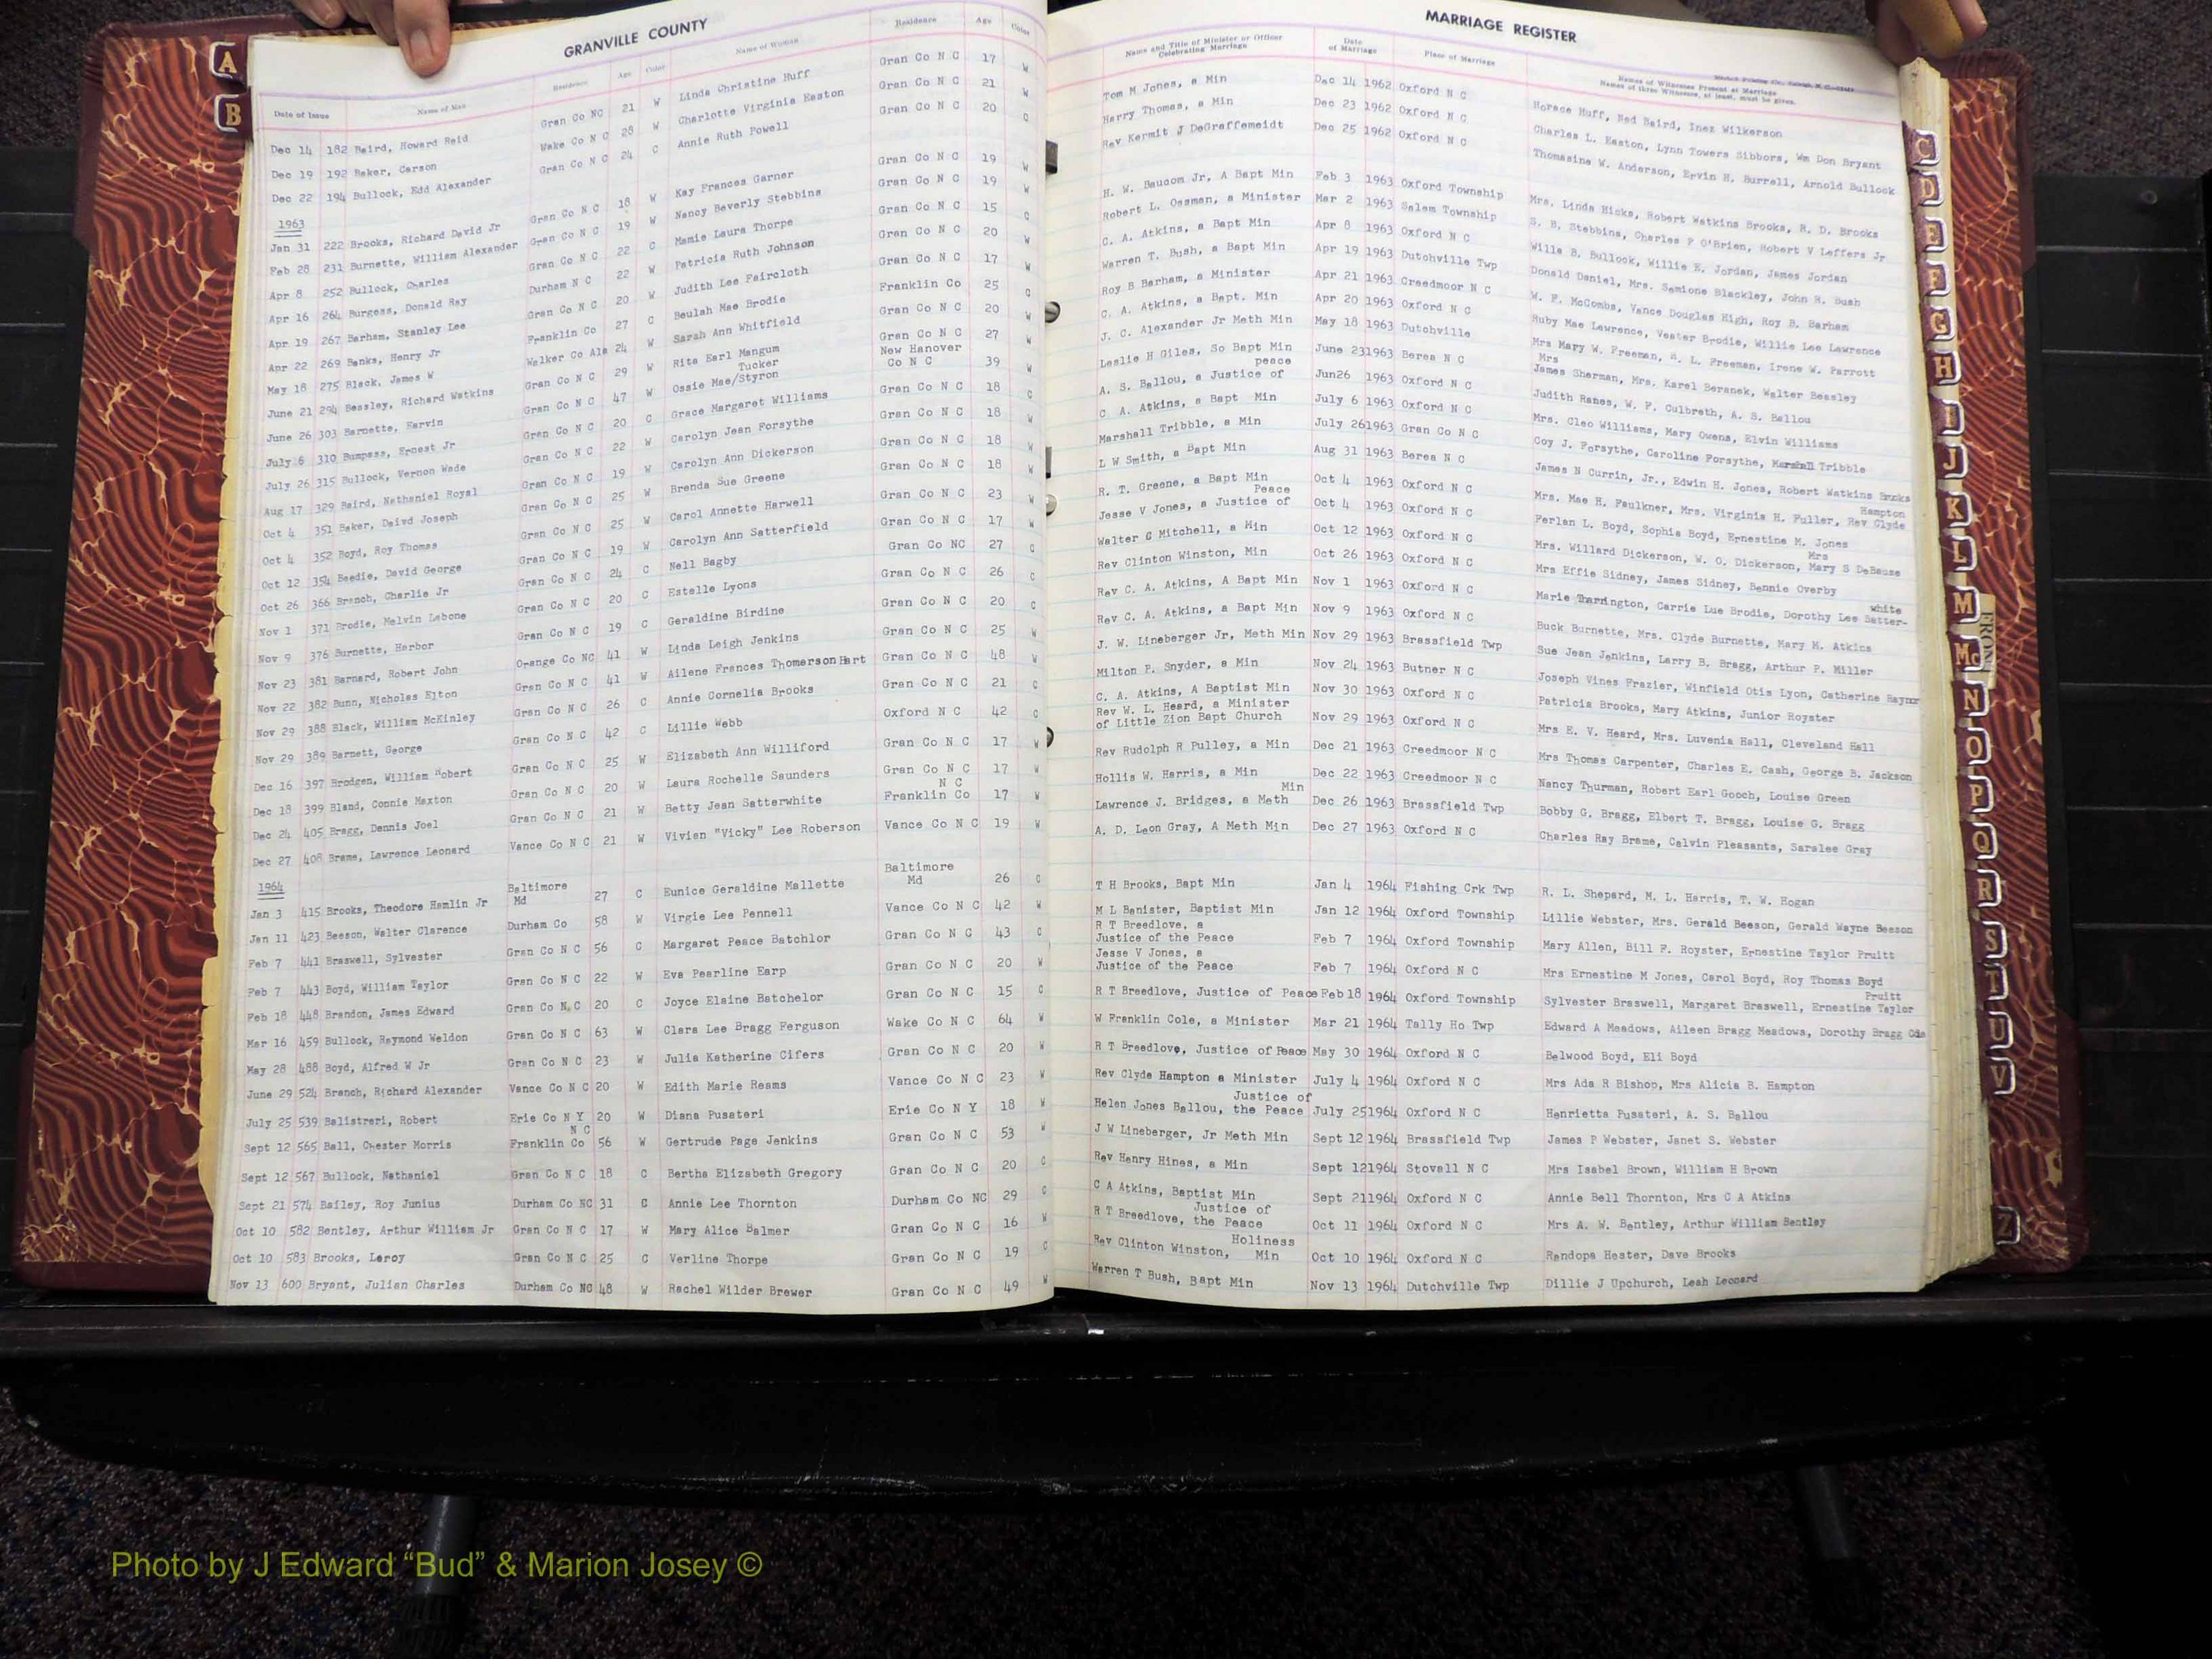 GRANVILLE COUNTY
MARRIAGE REGISTER
Date of Issue Name of Man Residence Age Color Name of Woman Residence Age Color Name and Title of Minister or Officer Celebrating Marriage Date of Marriage Place of Marriage Names of Witnesses Present at Marriage Names of three Witnesses, at least, must be given.
Dec 14 182 Baird, Howard Reid Gran Co NC 21 W Linda Christine Huff Gran Co N C 17 W Tom M Jones, a Min Dec 14 1962 Oxford N C Horace Huff, Ned Baird, Inez Wilkerson
Dec 19 192 Baker, Carson Wake Co N C 28 W Charlotte Virginia Easton Gran Co N C 21 W Harry Thomas, a Min Dec 23 1962 Oxford N C Charles L. Easton, Lynn Towers Sibbors, Wm Don Bryant
Dec 22 194 Bullock, Edd Alexander Gran Co N C 24 C Annie Ruth Powell Gran Co N C 20 C Rev Kermit J DeGraffemeidt Dec 25 1962 Oxford N C Thomasine W. Anderson, Ervin H. Burrell, Arnold Bullock
1963
Jan 31 222 Brooks, Richard David Jr Gran Co N C 18 W Kay Frances Garner Gran Co N C 19 W H. W. Baucom Jr, A Bapt Min Feb 3 1963 Oxford Township Mrs. Linda Hicks, Robert Watkins Brooks, R. D. Brooks
Feb 28 231 Burnette, William Alexander Gran Co N C 19 W Nancy Beverly Stebbins Gran Co N C 19 W Robert L. Ossman, a Minister Mar 2 1963 Salem Township S. B. Stebbins, Charles F O'Brien, Robert V Leffers Jr
Apr 8 252 Bullock, Charles Gran Co N C 22 C Mamie Laura Thorpe Gran Co N C 15 C C. A. Atkins, a Bapt Min Apr 8 1963 Oxford N C Wills B. Bullock, Willie E. Jordan, James Jordan
Apr 16 264 Burgess, Donald Ray Durham N C 22 W Patricia Ruth Johnson Gran Co N C 20 W Warren T. Bush, a Bapt Min Apr 19 1963 Dutchville Twp Donald Daniel, Mrs. Samione Blackley, John R. Bush
Apr 19 267 Barham, Stanley Lee Gran Co N C 20 W Judith Lee Faircloth Gran Co N C 17 W Roy B Barham, a Minister Apr 21 1963 Creedmoor N C W. F. McCombs, Vance Douglas High, Roy B. Barham
Apr 22 269 Banks, Henry Jr Franklin Co 27 C Beulah Mae Brodie Franklin Co 25 C C. A. Atkins, a Bapt. Min Apr 20 1963 Oxford N C Ruby Mae Lawrence, Vester Brodie, Willie Lee Lawrence
May 18 275 Black, James W Walker Co Ala 24 W Sarah Ann Whitfield Gran Co N C 20 W J. C. Alexander Jr Meth Min May 18 1963 Dutchville Mrs Mary W. Freeman, R. L. Freeman, Irene W. Parrott
June 21 294 Beasley, Richard Watkins Gran Co N C 29 W Rita Earl Mangum Gran Co N C 27 W Leslie H Giles, So Bapt Min June 231963 Berea N C Mrs James Sherman, Mrs. Karel Beranek, Walter Beasley
June 26 303 Barnette, Earvin Gran Co N C 47 W Ossie Mae/Styron Tucker New Hanover Co N C 39 W A. S. Ballou, a Justice of peace Jun26 1963 Oxford N C Judith Ranes, W. P. Culbreth, A. S. Ballou
July 6 310 Bumpass, Ernest Jr Gran Co N C 20 C Grace Margaret Williams Gran Co N C 18 C C A. Atkins, a Bapt Min July 6 1963 Oxford N C Mrs. Cleo Williams, Mary Owens, Elvin Williams
July 26 315 Bullock, Vernon Wade Gran Co N C 22 W Carolyn Jean Forsythe Gran Co N C 18 W Marshall Tribble, a Min July 261963 Gran Co N C Coy J. Forsythe, Caroline Forsythe, Marshall Tribble
Aug 17 329 Baird, Nathaniel Royal Gran Co N C 19 W Carolyn Ann Dickerson Gran Co N C 18 W L W Smith, a Bapt Min Aug 31 1963 Berea N C James N Currin, Jr., Edwin H. Jones, Robert Watkins Brooks
Oct 4 351 Baker, Daivd Joseph Gran Co N C 25 W Brenda Sue Greene Gran Co N C 18 W R. T. Greene, a Bapt Min Oct 4 1963 Oxford N C Mrs. Mae H. Faulkner, Mrs. Virginia H. Fuller, Rev Clyde Hampton
Oct 4 352 Boyd, Roy Thomas Gran Co N C 25 W Carol Annette Harwell Gran Co N C 23 W Jesse V Jones, a Justice of Peace Oct 4 1963 Oxford N C Ferlan L. Boyd, Sophia Boyd, Ernestine M. Jones
Oct 12 354 Beedie, David George Gran Co N C 19 W Carolyn Ann Satterfield Gran Co N C 17 W Walter C Mitchell, a Min Oct 12 1963 Oxford N C Mrs. Willard Dickerson, W. O. Dickerson, Mrs Mary S DeBause
Oct 26 366 Branch, Charlie Jr Gran Co N C 24 C Nell Bagby Gran Co NC 27 C Rev Clinton Winston, Min Oct 26 1963 Oxford N C Mrs Effie Sidney, James Sidney, Bennie Overby
Nov 1 371 Brodie, Melvin Labone Gran Co N C 20 C Estelle Lyons Gran Co N C 26 C Rev C. A. Atkins, A Bapt Min Nov 1 1963 Oxford N C Marie Tharrington, Carrie Lue Brodie, Dorothy Lee Satter- white
Nov 9 376 Burnette, Harbor Gran Co N C 19 C Geraldine Birdine Gran Co N C 20 C Rev C. A. Atkins, a Bapt Min Nov 9 1963 Oxford N C Buck Burnette, Mrs. Clyde Burnette, Mary M. Atkins
Nov 23 381 Barnard, Robert John Orange Co NC 41 W Linda Leigh Jenkins Gran Co N C 25 W J. W. Lineberger Jr, Meth Min Nov 29 1963 Brassfield Twp Sue Jean Jenkins, Larry B. Bragg, Arthur P. Miller
Nov 22 382 Bunn, Nicholas Elton Gran Co N C 41 W Ailene Frances Thomerson Hart Gran Co N C 48 W Milton P. Snyder, a Min Nov 24 1963 Butner N C Joseph Vines Frazier, Winfield Otis Lyon, Catherine Raynor
Nov 29 388 Black, William McKinley Gran Co N C 26 C Annie Cornelia Brooks Gran Co N C 21 C C. A. Atkins, A Baptist Min Nov 30 1963 Oxford N C Patricia Brooks, Mary Atkins, Junior Royster
Nov 29 389 Barnett, George Gran Co N C 42 C Lillie Webb Oxford N C 42 C Rev W. L. Heard, a Minister of Little Zion Bapt Church Nov 29 1963 Oxford N C Mrs E. V. Heard, Mrs. Luvenia Hall, Cleveland Hall
Dec 16 397 Brodgen, William Robert Gran Co N C 25 W Elizabeth Ann Williford Gran Co N C 17 W Rev Rudolph R Pulley, a Min Dec 21 1963 Creedmoor N C Mrs Thomas Carpenter, Charles E. Cash, George B. Jackson
Dec 18 399 Bland, Connie Maxton Gran Co N C 20 W Laura Rochelle Saunders Gran Co N C 17 W Hollis W. Harris, a Min Dec 22 1963 Creedmoor N C Nancy Thurman, Robert Earl Gooch, Louise Green
Dec 24 405 Bragg, Dennis Joel Gran Co N C 21 W Betty Jean Satterwhite Franklin Co N C 17 W Lawrence J. Bridges, a Meth Min Dec 26 1963 Brassfield Twp Bobby G. Bragg, Elbert T. Bragg, Louise G. Bragg
Dec 27 408 Brame, Lawrence Leonard Vance Co N C 21 W Vivian "Vicky" Lee Roberson Vance Co N C 19 W A. D. Leon Gray, A Meth Min Dec 27 1963 Oxford N C Charles Ray Brame, Calvin Pleasants, Saralee Gray
1964
Jan 3 415 Brooks, Theodore Hamlin Jr Baltimore Md 27 C Eunice Geraldine Mallette Baltimore Md 26 C T H Brooks, Bapt Min Jan 4 1964 Fishing Crk Twp R. L. Shepard, M. L. Harris, T. W. Hogan
Jan 11 423 Beeson, Walter Clarence Durham Co 58 W Virgie Lee Pennell Vance Co N C 42 W M L Banister, Baptist Min Jan 12 1964 Oxford Township Lillie Webster, Mrs. Gerald Beeson, Gerald Wayne Beeson
Feb 7 441 Braswell, Sylvester Gran Co N C 56 C Margaret Peace Batchlor Gran Co N C 43 C R T Breedlove, a Justice of the Peace Feb 7 1964 Oxford Township Mary Allen, Bill F. Royster, Ernestine Taylor Pruitt
Feb 7 443 Boyd, William Taylor Gran Co N C 22 W Eva Pearline Earp Gran Co N C 20 W Jesse V Jones, a Justice of the Peace Feb 7 1964 Oxford N C Mrs Ernestine M Jones, Carol Boyd, Roy Thomas Boyd
Feb 18 448 Brandon, James Edward Gran Co N.C 20 C Joyce Elaine Batchelor Gran Co N C 15 C R T Breedlove, Justice of Peace Feb 18 1964 Oxford Township Sylvester Braswell, Margaret Braswell, Ernestine Taylor Pruitt
Mar 16 459 Bullock, Raymond Weldon Gran Co N C 63 W Clara Lee Bragg Ferguson Wake Co N C 64 W W Franklin Cole, a Minister Mar 21 1964 Tally Ho Twp Edward A Meadows, Aileen Bragg Meadows, Dorothy Bragg
May 28 488 Boyd, Alfred W Jr Gran Co N C 23 W Julia Katherine Cifers Gran Co N C 20 W R T Breedlove, Justice of Peace May 30 1964 Oxford N C Belwood Boyd, Eli Boyd
June 29 524 Branch, Richard Alexander Vance Co N C 20 W Edith Marie Reams Vance Co N C 23 W Rev Clyde Hampton a Minister July 4 1964 Oxford N C Mrs Ada R Bishop, Mrs Alicia B. Hampton
July 25 539 Balistreri, Robert Erie Co N Y 20 W Diana Pusateri Erie Co N Y 18 W Helen Jones Ballou, Justice of the Peace July 251964 Oxford N C Henrietta Pusateri, A. S. Ballou
Sept 12 565 Ball, Chester Morris Franklin Co N C 56 W Gertrude Page Jenkins Gran Co N C 53 W J W Lineberger, Jr Meth Min Sept 12 1964 Brassfield Twp James P Webster, Janet S. Webster
Sept 12 567 Bullock, Nathaniel Gran Co N C 18 C Bertha Elizabeth Gregory Gran Co N C 20 C Rev Henry Hines, a Min Sept 121964 Stovall N C Mrs Isabel Brown, William H Brown
Sept 21 574 Bailey, Roy Junius Durham Co NC 31 C Annie Lee Thornton Durham Co NC 29 C C A Atkins, Baptist Min Sept 211964 Oxford N C Annie Bell Thornton, Mrs C A Atkins
Oct 10 582 Bentley, Arthur William Jr Gran Co N C 17 W Mary Alice Balmer Gran Co N C 16 W R T Breedlove, Justice of the Peace Oct 11 1964 Oxford N C Mrs A. W. Bentley, Arthur William Bentley
Oct 10 583 Brooks, Leroy Gran Co N C 25 C Verline Thorpe Gran Co N C 19 C Rev Clinton Winston, Holiness Min Oct 10 1964 Oxford N C Randopa Hester, Dave Brooks
Nov 13 600 Bryant, Julian Charles Durham Co NC 48 W Rachel Wilder Brewer Gran Co N C 49 W Warren T Bush, Bapt Min Nov 13 1964 Dutchville Twp Dillie J Upchurch, Leah Leonard
A
B
C
D
E
F
G
H
I
J
K
L
M
Mc
N
O
P
Q
R
S
T
U
V
Z
Photo by J Edward “Bud” & Marion Josey ©